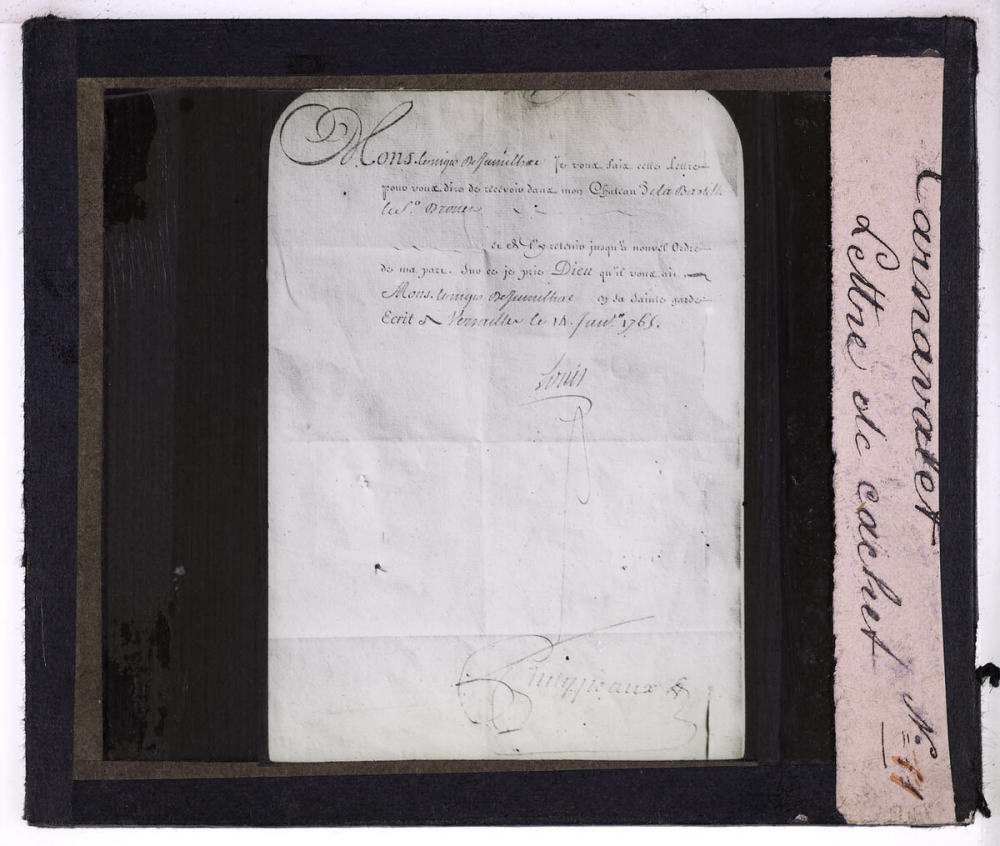 Mons. Lemqis De Jumilhac Je vous faix cette Lettre
pour vous dire de recevoir dans mon Chateau De la Bastille
le Sr.
et de l'y retenir jusqu'à nouvel Ordre
de ma part. Sur ce je prie Dieu qu'il vous ait
Mons. Lemqis De Jumilhac en sa Sainte garde
Ecrit à Versailles le 14 Janv. 1765.
Louis
Phelypeaux
Carnavalet
Lettre de cachet No 11